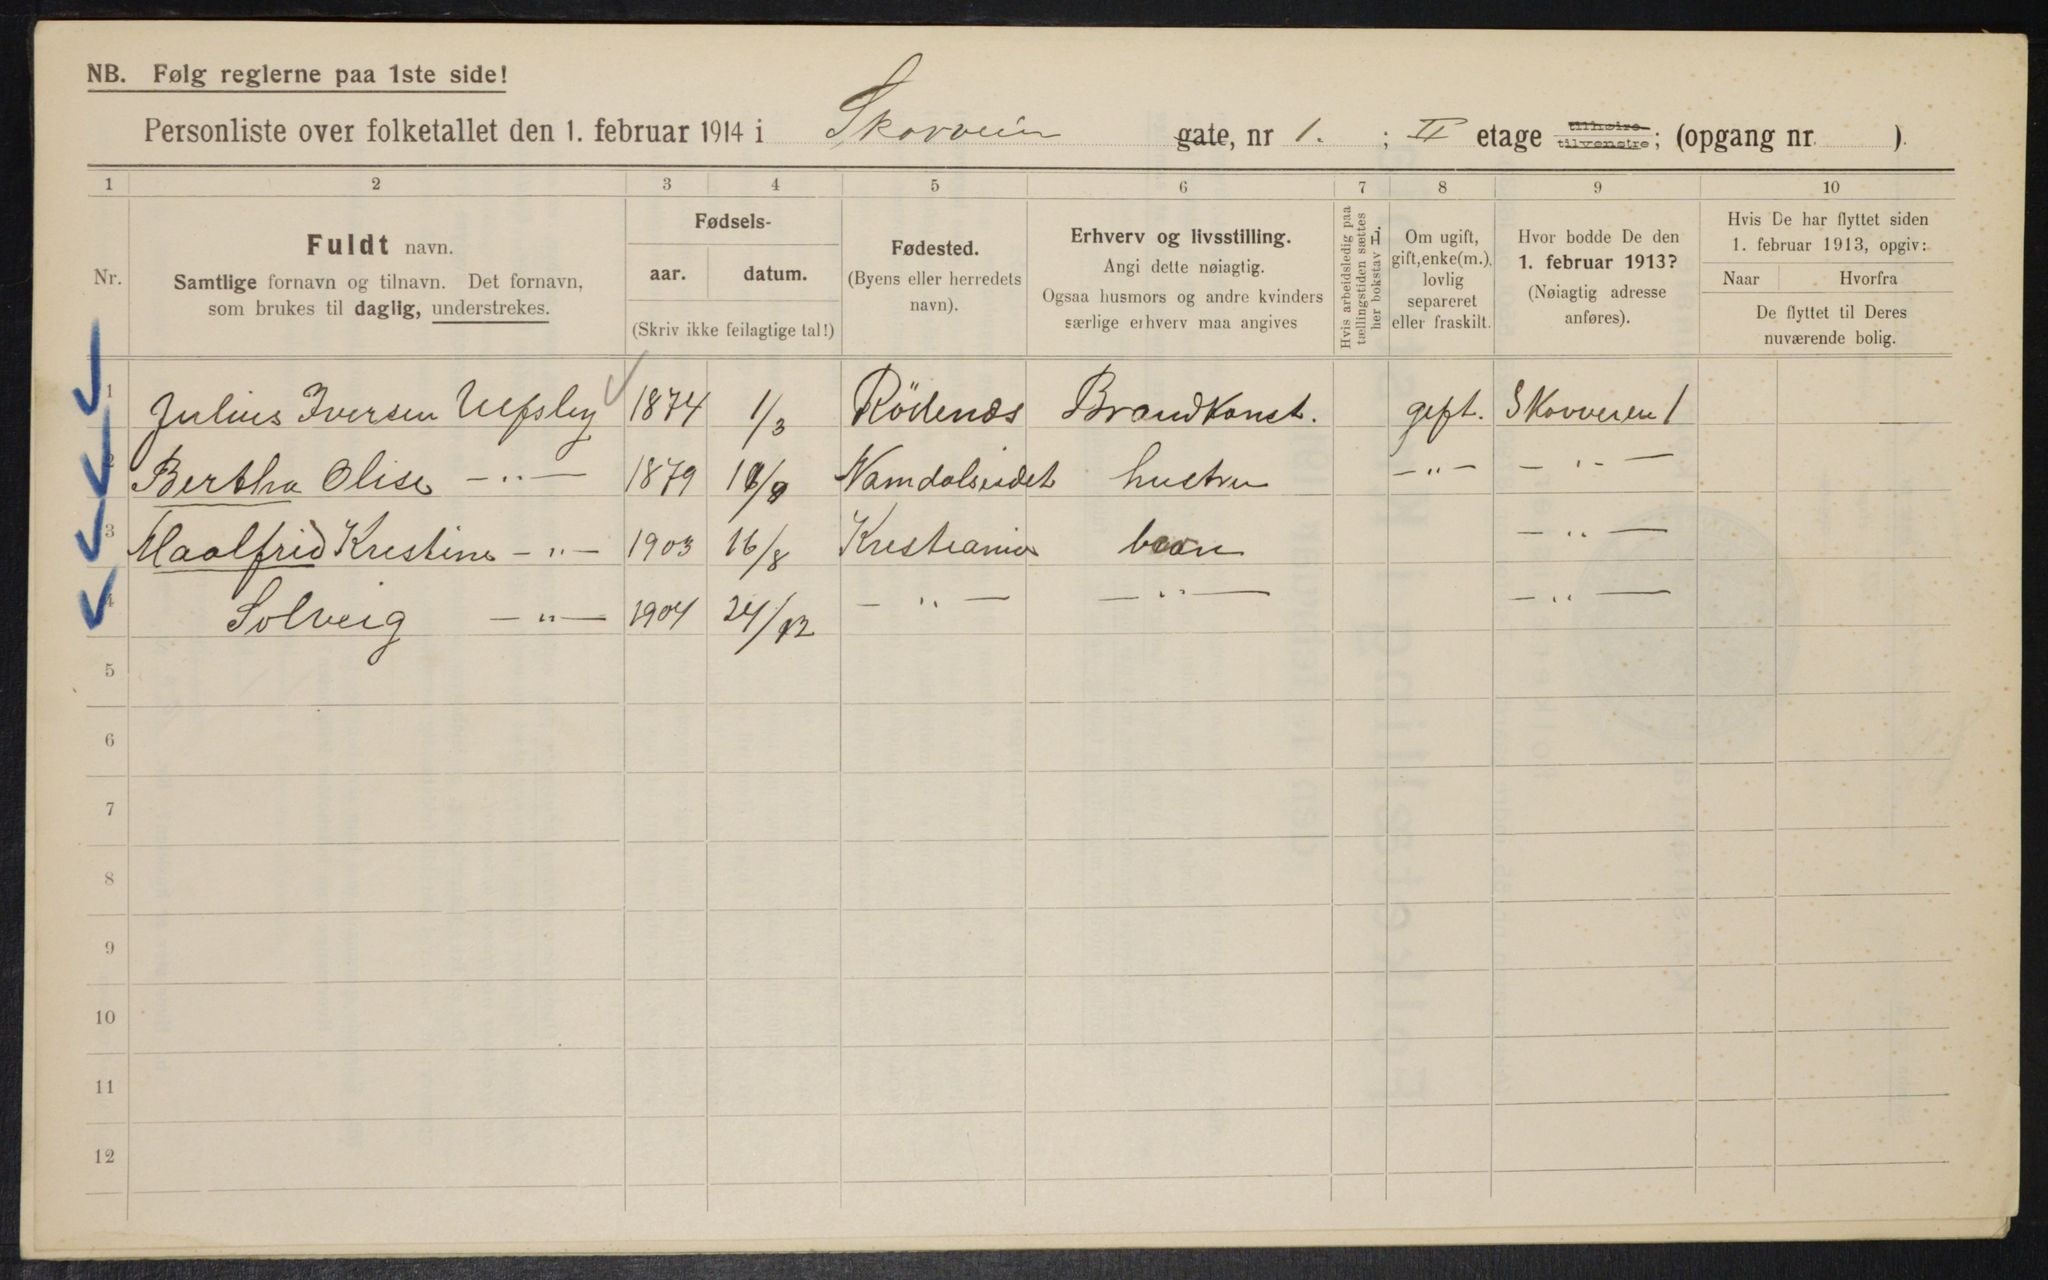 NB. Følg reglerne paa 1ste side!
Personliste over folketallet den 1. februar 1914 i Skovveien gate, nr 1. ; II etage tilhøire tilvenstre; (opgang nr. ).
1 2 3 4 5 6 7 8 9 10
Nr.
Fuldt navn.
Samtlige fornavn og tilnavn. Det fornavn,
som brukes til daglig, understrekes.
Fødsels-
aar. datum.
(Skriv ikke feilagtige tal!)
Fødested.
(Byens eller herredets
navn).
Erhverv og livsstilling.
Angi dette nøiagtig.
Ogsaa husmors og andre kvinders
særlige erhverv maa angives
Hvis arbeidsledig paa
tællingstiden sættes
her bokstav L.
Om ugift,
gift, enke(m.),
lovlig
separeret
eller fraskilt.
Hvor bodde De den
1. februar 1913?
(Nøiagtig adresse
anføres).
Hvis De har flyttet siden
1. februar 1913, opgiv:
Naar Hvorfra
De flyttet til Deres
nuværende bolig.
1 Julius Iversen Ulfsby 1874 1/3 Rödenæs Brandkonst. gift. Skovveien 1
2 Bertha Olise -"- 1879 /9 Namdalseidet hustru -"- -"-
3 Maalfrid Kristine -"- 1903 16/8 Kristiania barn -"-
4 Solveig -"- 1904 24/12 -"- -"- -"-
5
6
7
8
9
10
11
12